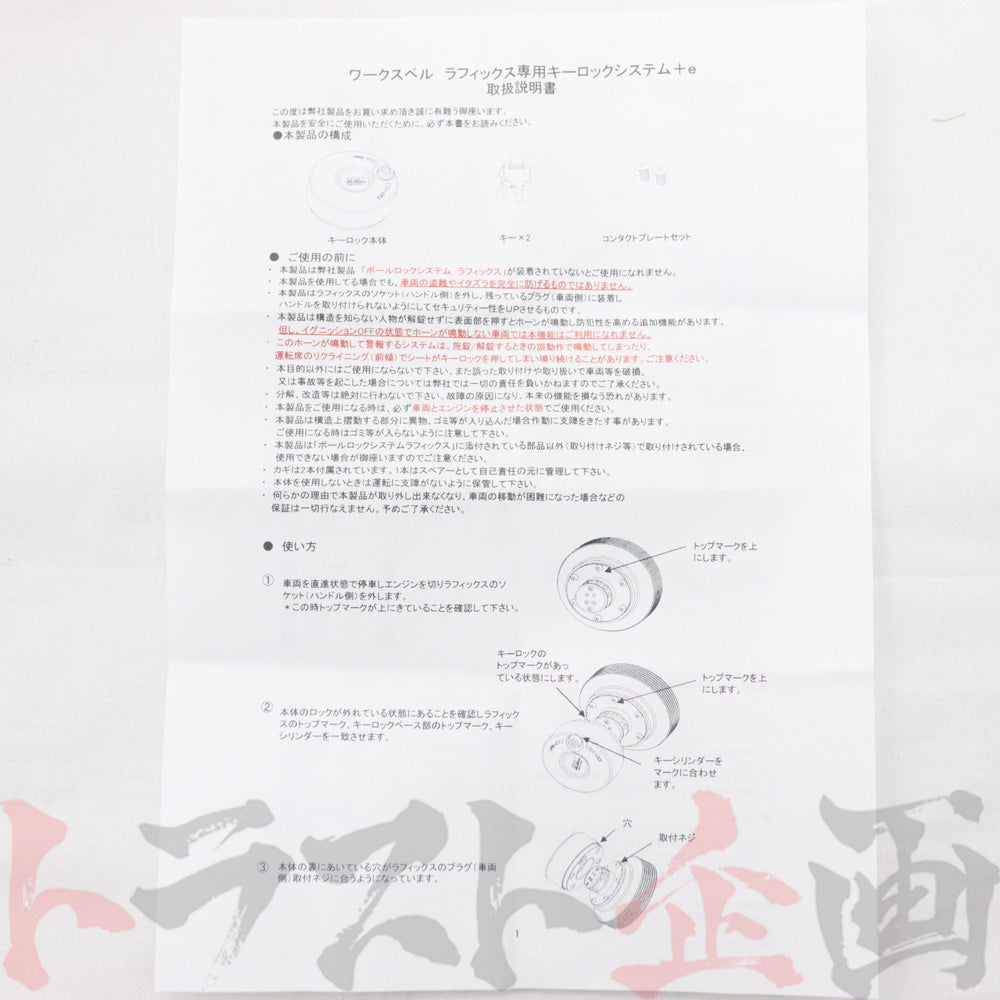 ワークスベル ラフィックス専用キーロックシステム＋e
取扱説明書
この度は弊社製品をお買い求め頂き誠に有難う御座います。
本製品を安全にご使用いただくために、必ず本書をお読みください。
●本製品の構成
キーロック本体
キー×2
コンタクトプレートセット
● ご使用の前に
・ 本製品は弊社製品「ボールロックシステム ラフィックス」が装着されていないとご使用になれません。
・ 本製品を使用してる場合でも、車両の盗難やイタズラを完全に防げるものではありません。
・ 本製品はラフィックスのソケット(ハンドル側)を外し、残っているプラグ(車両側)に装着し
ハンドルを取り付けられないようにしてセキュリティー性をUPさせるものです。
・ 本製品は構造を知らない人物が解錠せずに表面部を押すとホーンが鳴動し防犯性を高める追加機能があります。
但し、イグニッションOFFの状態でホーンが鳴動しない車両では本機能はご利用になれません。
・ このホーンが鳴動して警報するシステムは、施錠/解錠するときの誤動作で鳴動してしまったり、
運転席のリクライニング(前傾)でシートがキーロックを押してしまい鳴り続けることがあります。ご注意ください。
・ 本目的以外にはご使用にならないで下さい。また誤った取り付けや取り扱いで車両等を破損、
又は事故等を起こした場合については弊社では一切の責任を負いかねますのでご了承ください。
・ 分解、改造等は絶対に行わないで下さい。故障の原因になり、本来の機能を損なう恐れがあります。
・ 本製品をご使用になる時は、必ず車両とエンジンを停止させた状態でご使用ください。
・ 本製品は構造上摺動する部分に異物、ゴミ等が入り込んだ場合作動に支障をきたす事があります。
ご使用になる時はゴミ等が入らないように注意して下さい。
・ 本製品は「ボールロックシステムラフィックス」に添付されている部品以外(取り付けネジ等)で取り付けされている場合、
使用できない場合が御座いますのでご注意ください。
・ カギは2本付属されています。1本はスペアーとして自己責任の元に管理して下さい。
・ 本体を使用しないときは運転に支障がないように保管して下さい。
・ 何らかの理由で本製品が取り外し出来なくなり、車両の移動が困難になった場合などの
保証は一切行なえません。予めご了承ください。
● 使い方
① 車両を直進状態で停車しエンジンを切りラフィックスのソ
ケット(ハンドル側)を外します。
＊この時トップマークが上にきていることを確認して下さい。
トップマークを上
にします。
キーロックの
トップマークがあっ
ている状態にします。
トップマークを上
にします。
② 本体のロックが外れている状態にあることを確認しラフィック
スのトップマーク、キーロックベース部のトップマーク、キー
シリンダーを一致させます。
キーシリンダーを
マークに合わせ
ます。
穴
取付ネジ
③ 本体の裏にあいている穴がラフィックスのプラグ(車両
側)取付ネジに合うようになっています。
1
トラスト企画